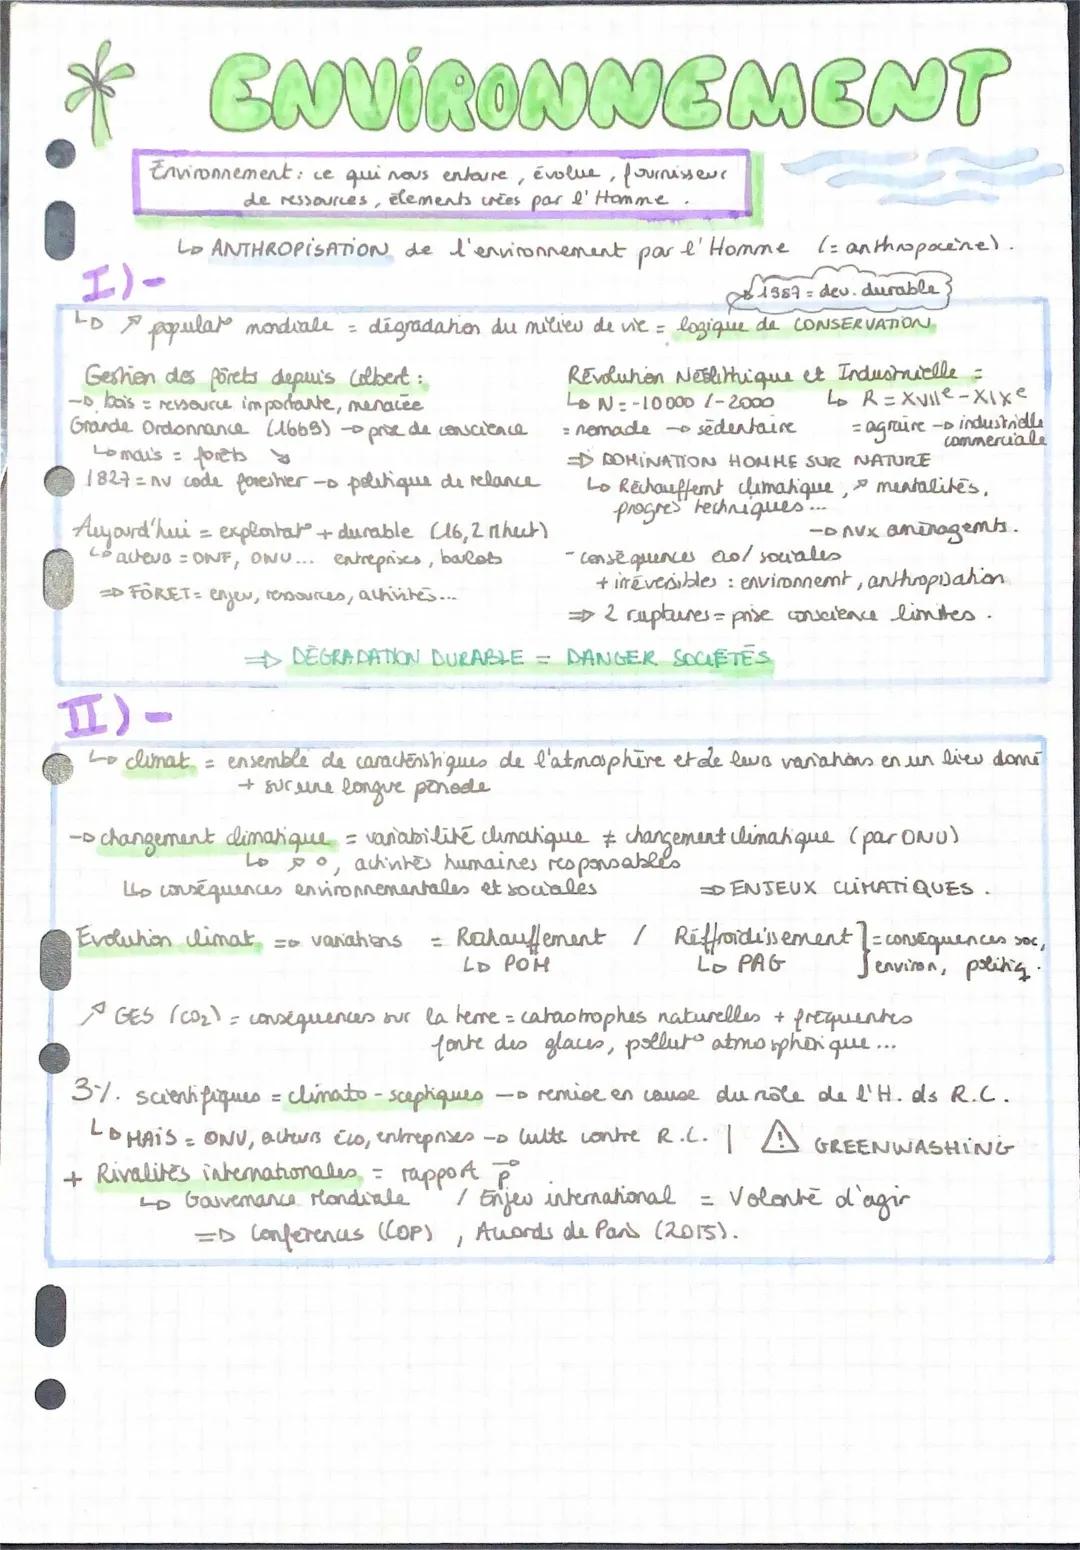 ENVIRONNEMENT
Environnement : ce qui nous entoure, évolue, fournisseur
de ressources, élements crées par l'Homme.
↳ ANTHROPISATION de l'environnement par l'Homme (= anthropocène).
I)-
1987 = dev. durable
↳ ↗ populat° mondiale = dégradation du milieu de vie = logique de CONSERVATION
Gestion des forêts depuis Colbert :
→ bois = ressource importante, menacée
Grande Ordonnance (1669) → prise de conscience
↳ mais = forêts ↘
1827 = nv code forestier → politique de relance
Aujourd'hui = exploitat° + durable (16,2 M hect)
↳ acteurs = ONF, ONU... entreprises, ballots
⇒ FÔRET = enjeu, ressources, activités...
Révolution Néolithique et Industrielle =
↳ N = -10 000 / -2000 ↳ R = XVIIIe - XIXe
= nomade → sédentaire = agraire → industrielle
commerciale
⇒ DOMINATION HOMME SUR NATURE
↳ Réchauffemt climatique, ↗ mentalités,
progrès techniques...
→ nvx aménagemts.
- conséquences éco/sociales
+ irréversibles : environnemt, anthropisation
⇒ 2 ruptures = prise conscience limites.
⇒ DÉGRADATION DURABLE = DANGER SOCIÉTÉS
II)-
↳ climat = ensemble de caractéristiques de l'atmosphère et de leurs variations en un lieu donné
+ sur une longue période
→ changement climatique = variabilité climatique ≠ changement climatique (par ONU)
↳ ↗ °, activités humaines responsables
↳ conséquences environnementales et sociales ⇒ ENJEUX CLIMATIQUES.
Evolution climat ⇒ variations = Réchauffement / Réffroidissement ] = conséquences soc,
↳ POM ↳ PAG environ, politiq.
↗ GES (CO2) = conséquences sur la terre = catastrophes naturelles + fréquentes
fonte des glaces, pollut° atmosphérique...
3%. scientifiques = climato-sceptiques → remise en cause du rôle de l'H. ds R.C.
↳ MAIS = ONU, acteurs éco, entreprises → lutte contre R.C. | ⚠ GREENWASHING
+ Rivalités internationales = rapport p
↳ Gouvernance Mondiale / Enjeu international = Volonté d'agir
⇒ Conférences (COP), Accords de Paris (2015).